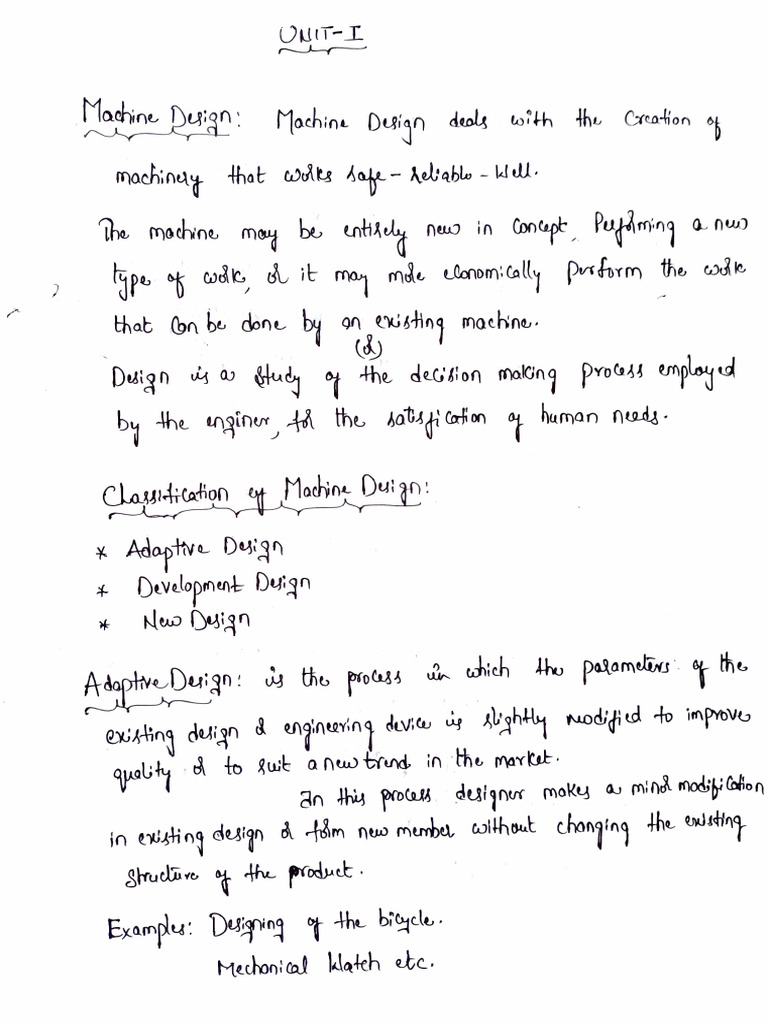 UNIT-I
Machine Design: Machine Design deals with the Creation of
machinery that works safe - reliable - well.
The machine may be entirely new in concept, Performing a new
type of work, or it may more economically perform the work
that can be done by an existing machine.
(or)
Design is a study of the decision making process employed
by the enginer, for the satisfication of human needs.
Classification of Machine Design:
* Adaptive Design
* Development Design
* New Design
Adaptive Design: is the process in which the parameters of the
existing design or engineering device is slightly modified to improve
quality or to suit a new trend in the market.
In this process designer makes a minor modification
in existing design or form new member without changing the existing
structure of the product.
Examples: Designing of the bicycle.
Mechonical Watch etc.